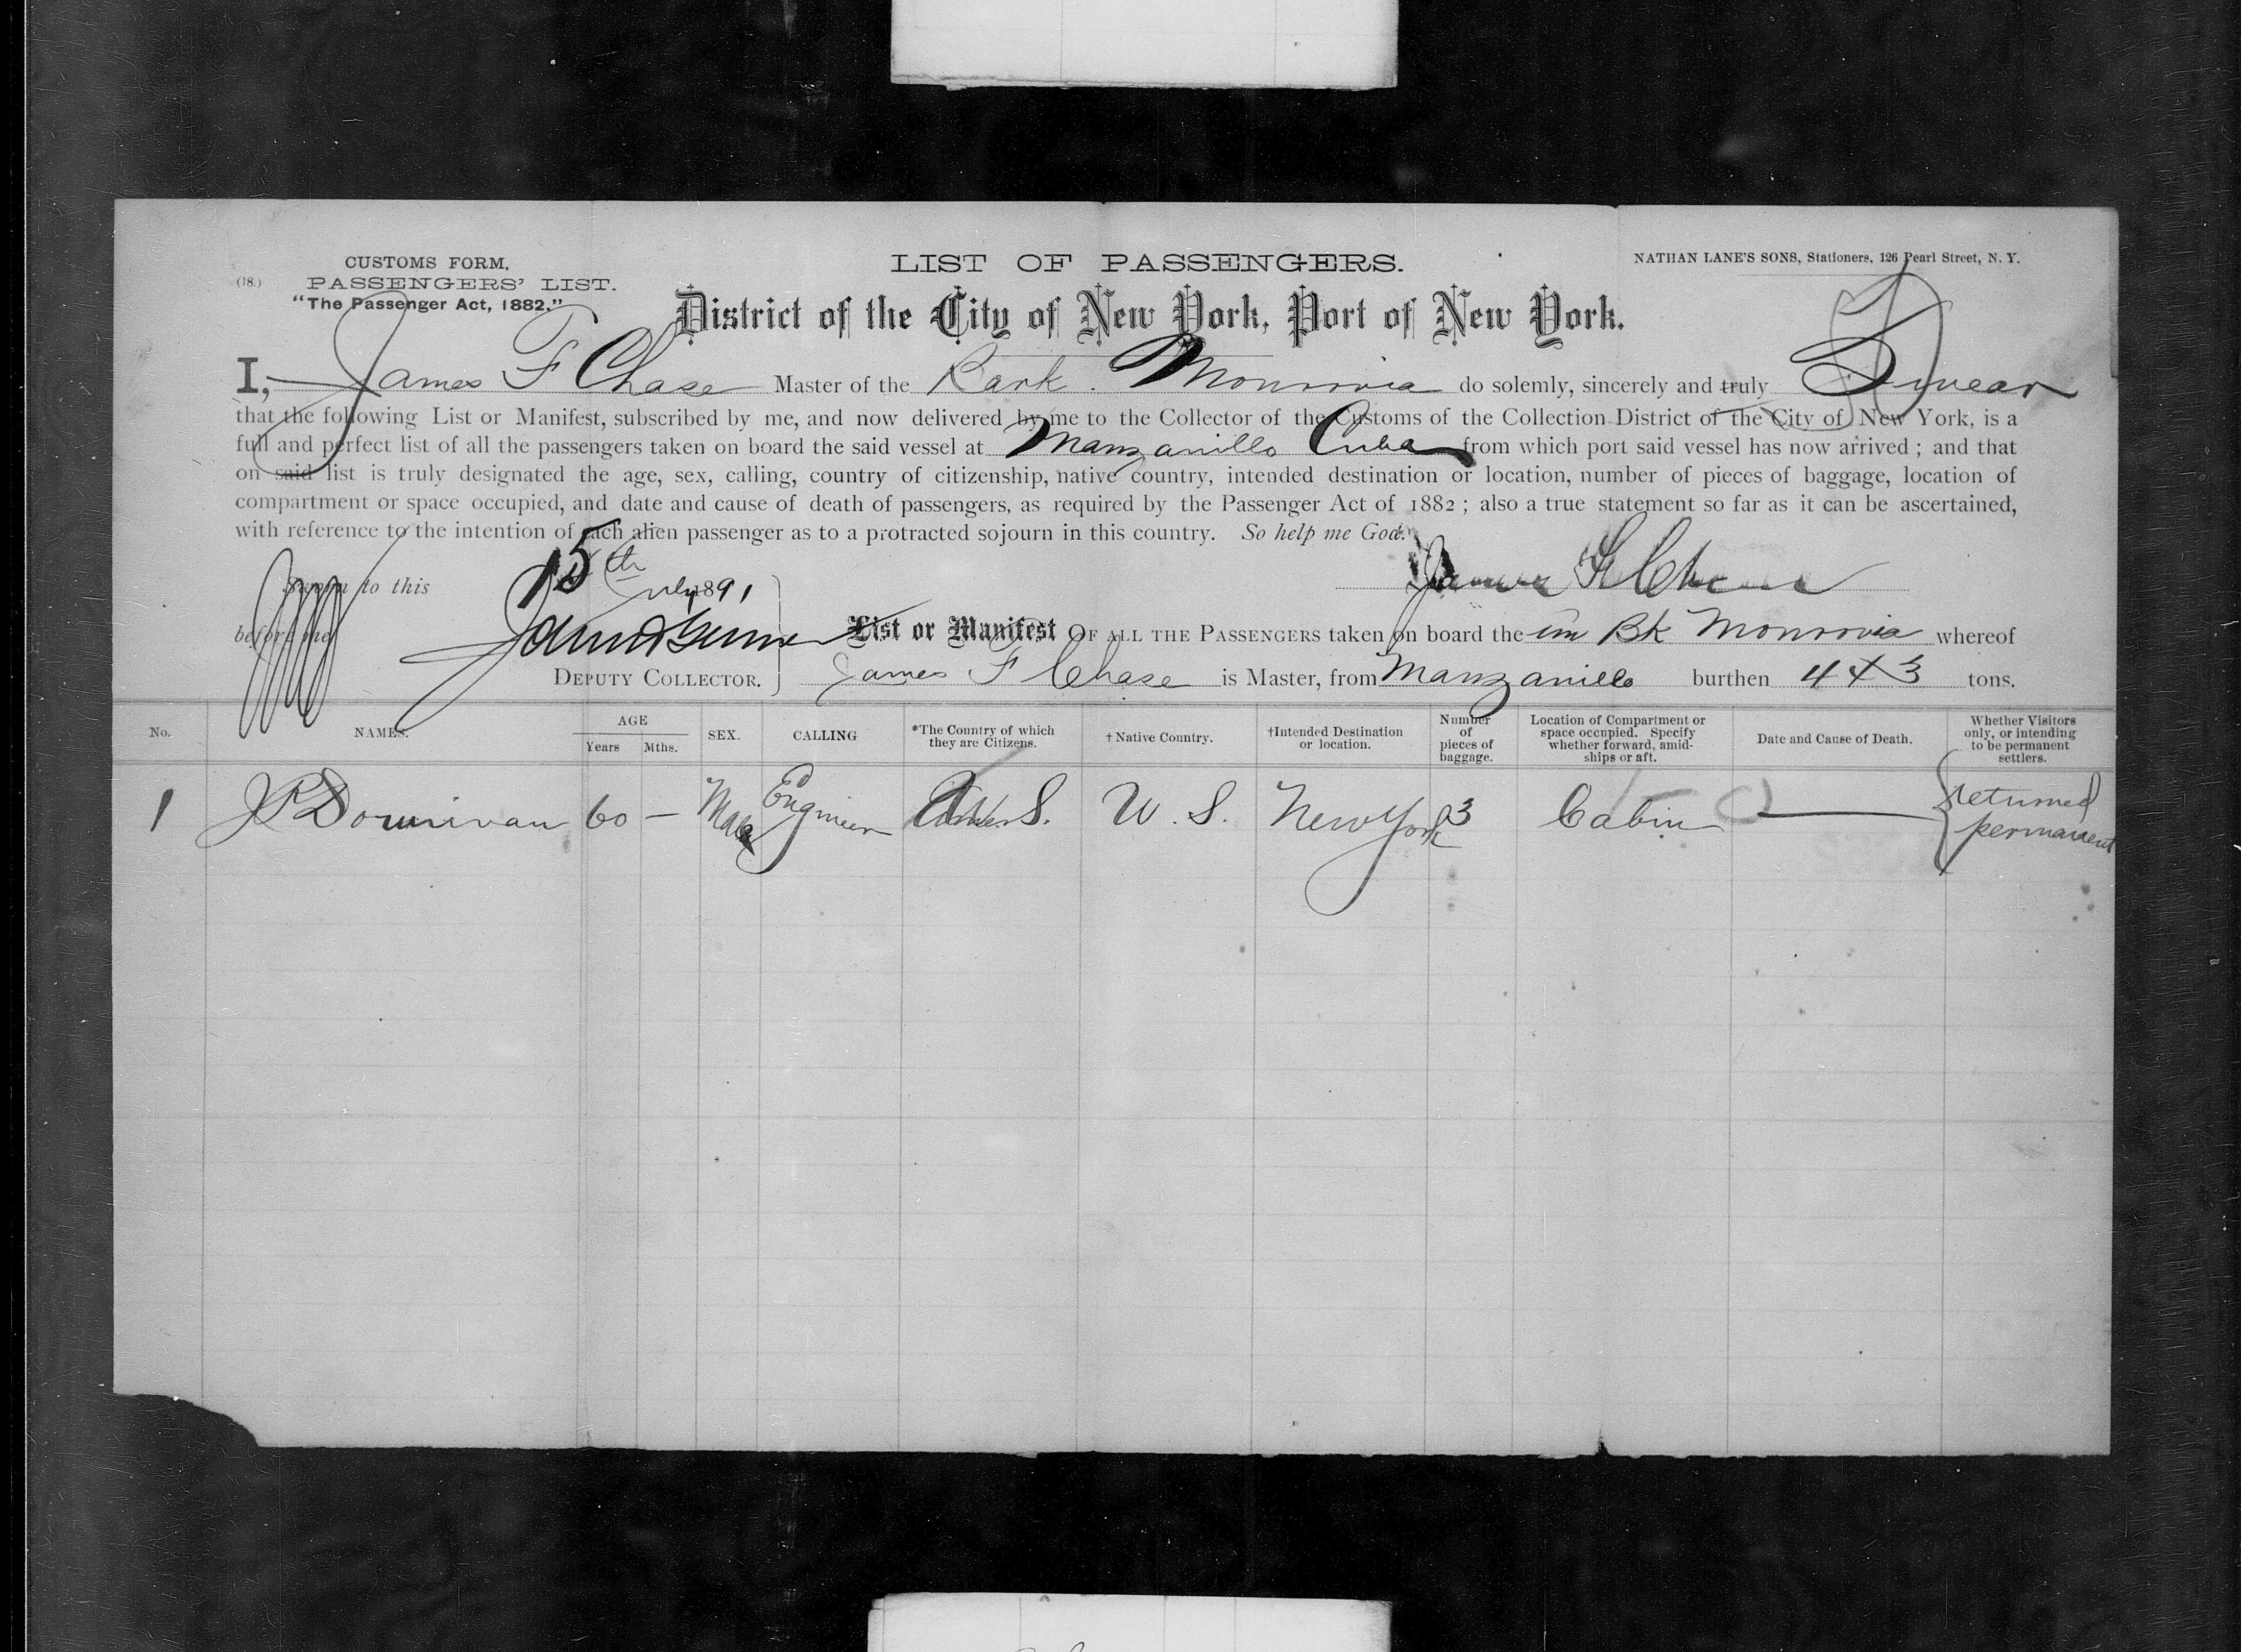 CUSTOMS FORM,
(18.) PASSENGERS' LIST.
"The Passenger Act, 1882."
LIST OF PASSENGERS.
NATHAN LANE'S SONS, Stationers, 126 Pearl Street, N. Y.
District of the City of New York, Port of New York.
I, James F Chase Master of the Bark. Monrovia do solemnly, sincerely and truly Swear
that the following List or Manifest, subscribed by me, and now delivered by me to the Collector of the Customs of the Collection District of the City of New York, is a
full and perfect list of all the passengers taken on board the said vessel at Manzanillo Cuba from which port said vessel has now arrived ; and that
on said list is truly designated the age, sex, calling, country of citizenship, native country, intended destination or location, number of pieces of baggage, location of
compartment or space occupied, and date and cause of death of passengers, as required by the Passenger Act of 1882 ; also a true statement so far as it can be ascertained,
with reference to the intention of each alien passenger as to a protracted sojourn in this country. So help me God.
Sworn to this 15th July 1891
James F Chase
before me
DEPUTY COLLECTOR.
List or Manifest OF ALL THE PASSENGERS taken on board the Am Bk Monrovia whereof
James F Chase is Master, from Manzanillo burthen 443 tons.
No. NAMES. AGE Years Mths. SEX. CALLING *The Country of which they are Citizens. †Native Country. †Intended Destination or location. Number of pieces of baggage. Location of Compartment or space occupied. Specify whether forward, amid-ships or aft. Date and Cause of Death. Whether Visitors only, or intending to be permanent settlers.
1 60 — Male Engineer U. S. New York 3 Cabin — returned permanent